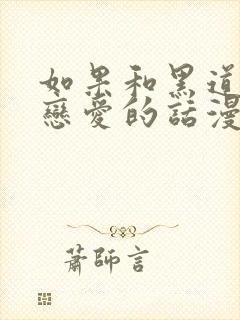 如果和黑道
戀愛的話漫
蕭師言